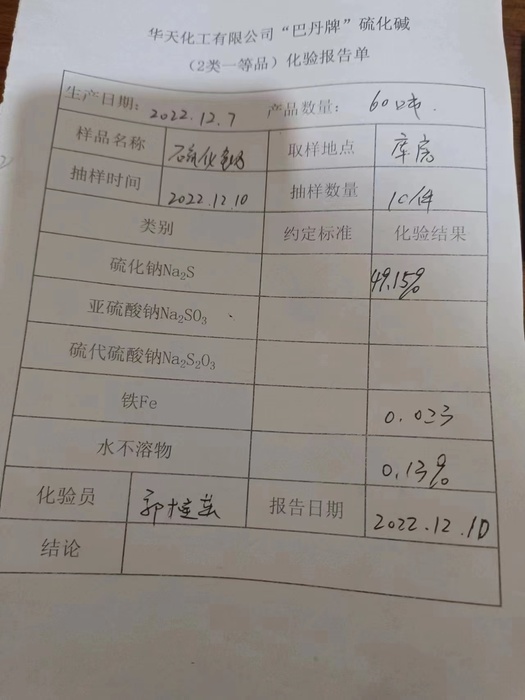 华天化工有限公司“巴丹牌”硫化碱
（2类一等品）化验报告单
生产日期： 2022.12.7 产品数量： 60吨.
样品名称 硫化钠 取样地点 库房
抽样时间 2022.12.10 抽样数量 10件
类别 约定标准 化验结果
硫化钠Na₂S 49.15%
亚硫酸钠Na₂SO₃
硫代硫酸钠Na₂S₂O₃
铁Fe 0.023
水不溶物 0.13%
化验员 报告日期 2022.12.10
结论